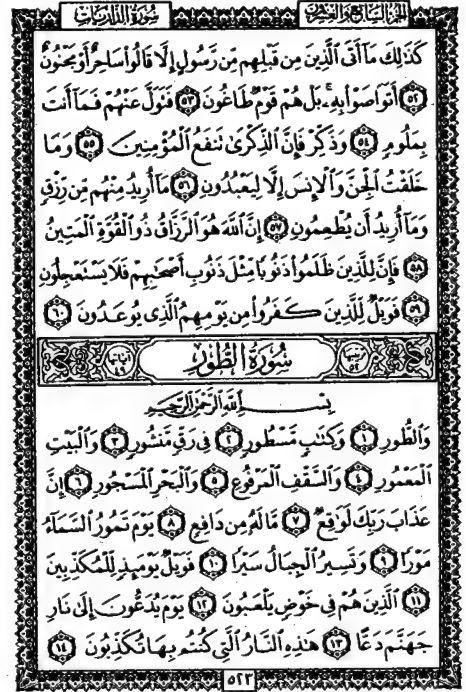 الجزء السابع والعشرون
سورة الذاريات
كَذَٰلِكَ مَآ أَتَى ٱلَّذِينَ مِن قَبۡلِهِم مِّن رَّسُولٍ إِلَّا قَالُواْ سَاحِرٌ أَوۡ مَجۡنُونٌ
٥٢ أَتَوَاصَوۡاْ بِهِۦۚ بَلۡ هُمۡ قَوۡمٌ طَاغُونَ ٥٣ فَتَوَلَّ عَنۡهُمۡ فَمَآ أَنتَ
بِمَلُومٍ ٥٤ وَذَكِّرۡ فَإِنَّ ٱلذِّكۡرَىٰ تَنفَعُ ٱلۡمُؤۡمِنِينَ ٥٥ وَمَا
خَلَقۡتُ ٱلۡجِنَّ وَٱلۡإِنسَ إِلَّا لِيَعۡبُدُونِ ٥٦ مَآ أُرِيدُ مِنۡهُم مِّن رِّزۡقٍ
وَمَآ أُرِيدُ أَن يُطۡعِمُونِ ٥٧ إِنَّ ٱللَّهَ هُوَ ٱلرَّزَّاقُ ذُو ٱلۡقُوَّةِ ٱلۡمَتِينُ
٥٨ فَإِنَّ لِلَّذِينَ ظَلَمُواْ ذَنُوبًا مِّثۡلَ ذَنُوبِ أَصۡحَٰبِهِمۡ فَلَا يَسۡتَعۡجِلُونِ
٥٩ فَوَيۡلٌ لِّلَّذِينَ كَفَرُواْ مِن يَوۡمِهِمُ ٱلَّذِي يُوعَدُونَ ٦٠
ترتيبها ٥٢ سُورَةُ الطُّورِ آياتها ٤٩
بِسۡمِ ٱللَّهِ ٱلرَّحۡمَٰنِ ٱلرَّحِيمِ
وَٱلطُّورِ ١ وَكِتَٰبٍ مَّسۡطُورٍ ٢ فِي رَقٍّ مَّنشُورٍ ٣ وَٱلۡبَيۡتِ
ٱلۡمَعۡمُورِ ٤ وَٱلسَّقۡفِ ٱلۡمَرۡفُوعِ ٥ وَٱلۡبَحۡرِ ٱلۡمَسۡجُورِ ٦ إِنَّ
عَذَابَ رَبِّكَ لَوَٰقِعٌ ٧ مَّا لَهُۥ مِن دَافِعٍ ٨ يَوۡمَ تَمُورُ ٱلسَّمَآءُ
مَوۡرًا ٩ وَتَسِيرُ ٱلۡجِبَالُ سَيۡرًا ١٠ فَوَيۡلٌ يَوۡمَئِذٍ لِّلۡمُكَذِّبِينَ
١١ ٱلَّذِينَ هُمۡ فِي خَوۡضٍ يَلۡعَبُونَ ١٢ يَوۡمَ يُدَعُّونَ إِلَىٰ نَارِ
جَهَنَّمَ دَعًّا ١٣ هَٰذِهِ ٱلنَّارُ ٱلَّتِي كُنتُم بِهَا تُكَذِّبُونَ ١٤
٥٢٣